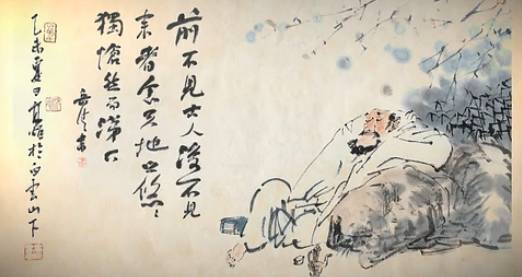 前不見古人後不見
來者念天地之悠〻
獨愴然而涕下
乙未夏日於白雲山下